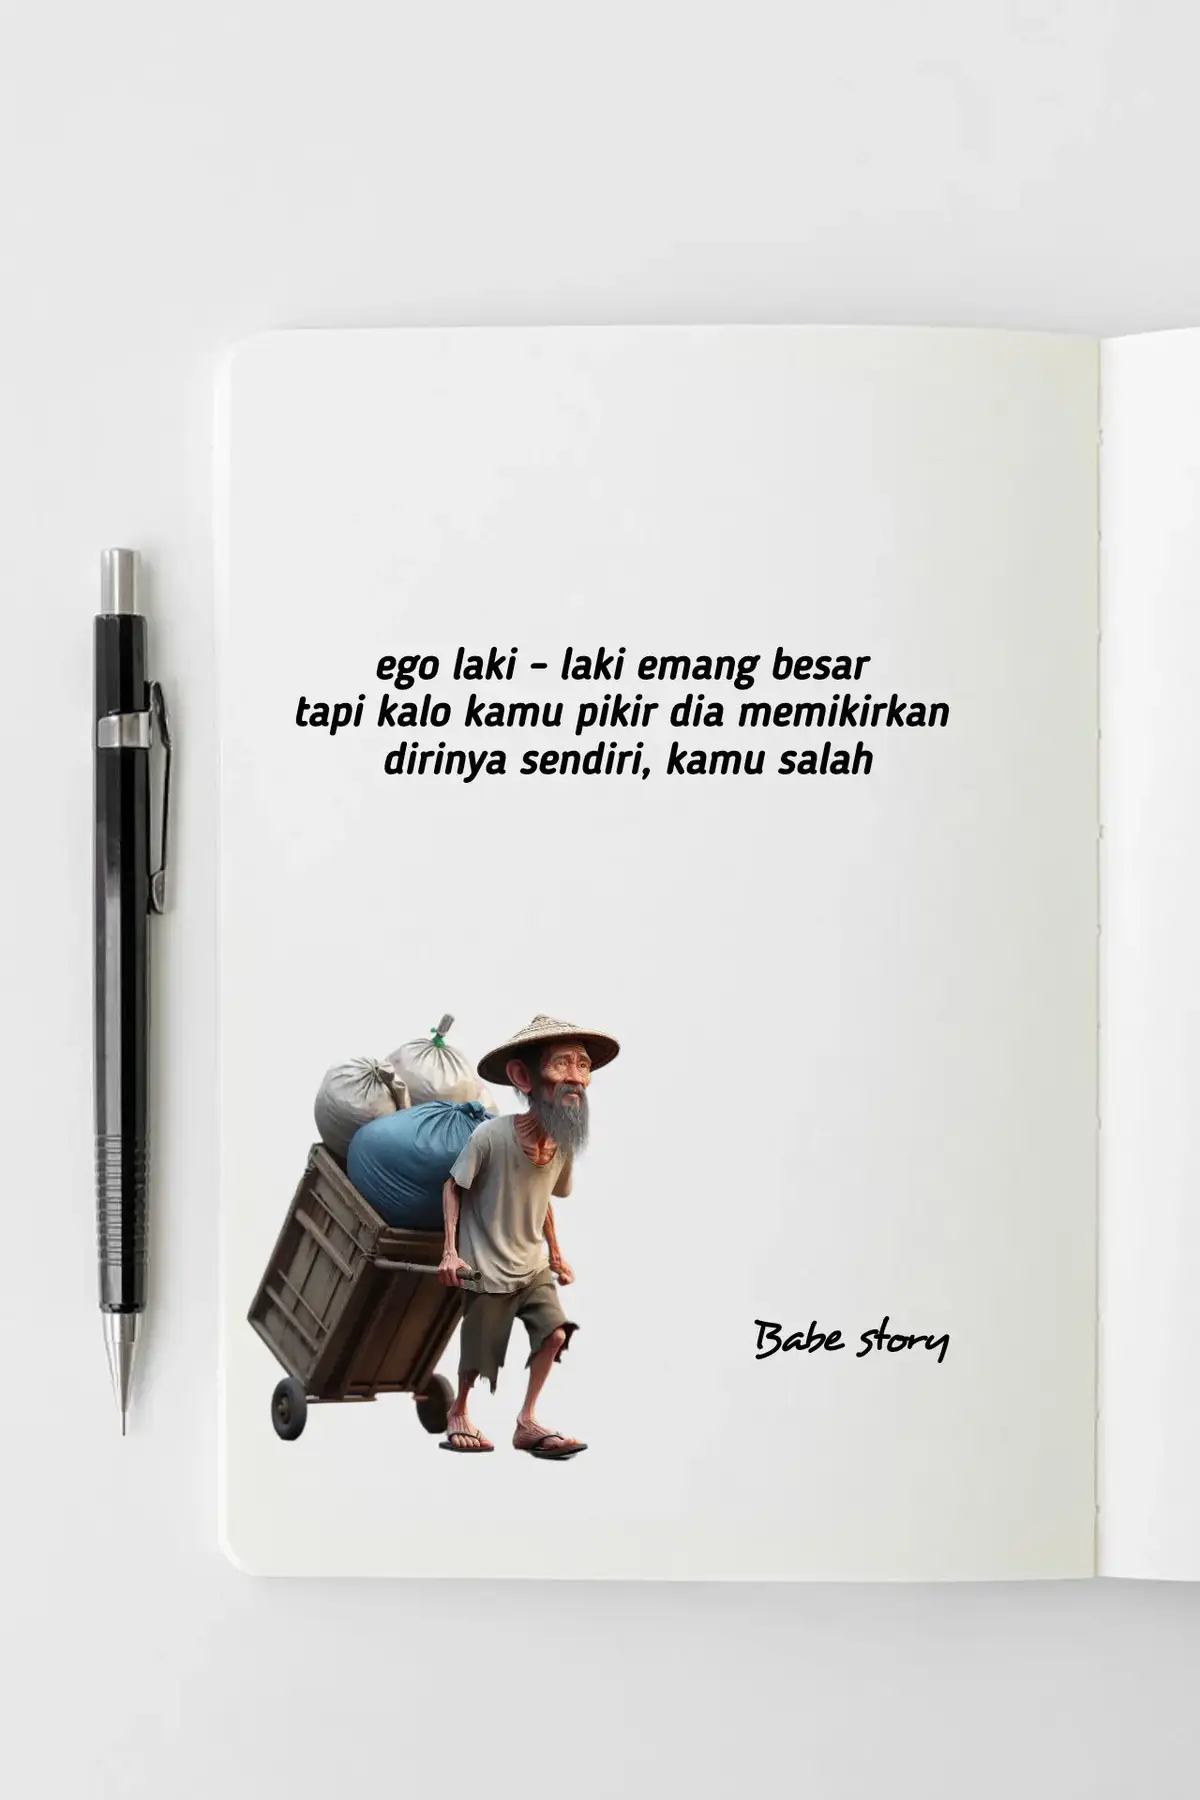 ego laki - laki emang besar
tapi kalo kamu pikir dia memikirkan
dirinya sendiri, kamu salah
Babe story